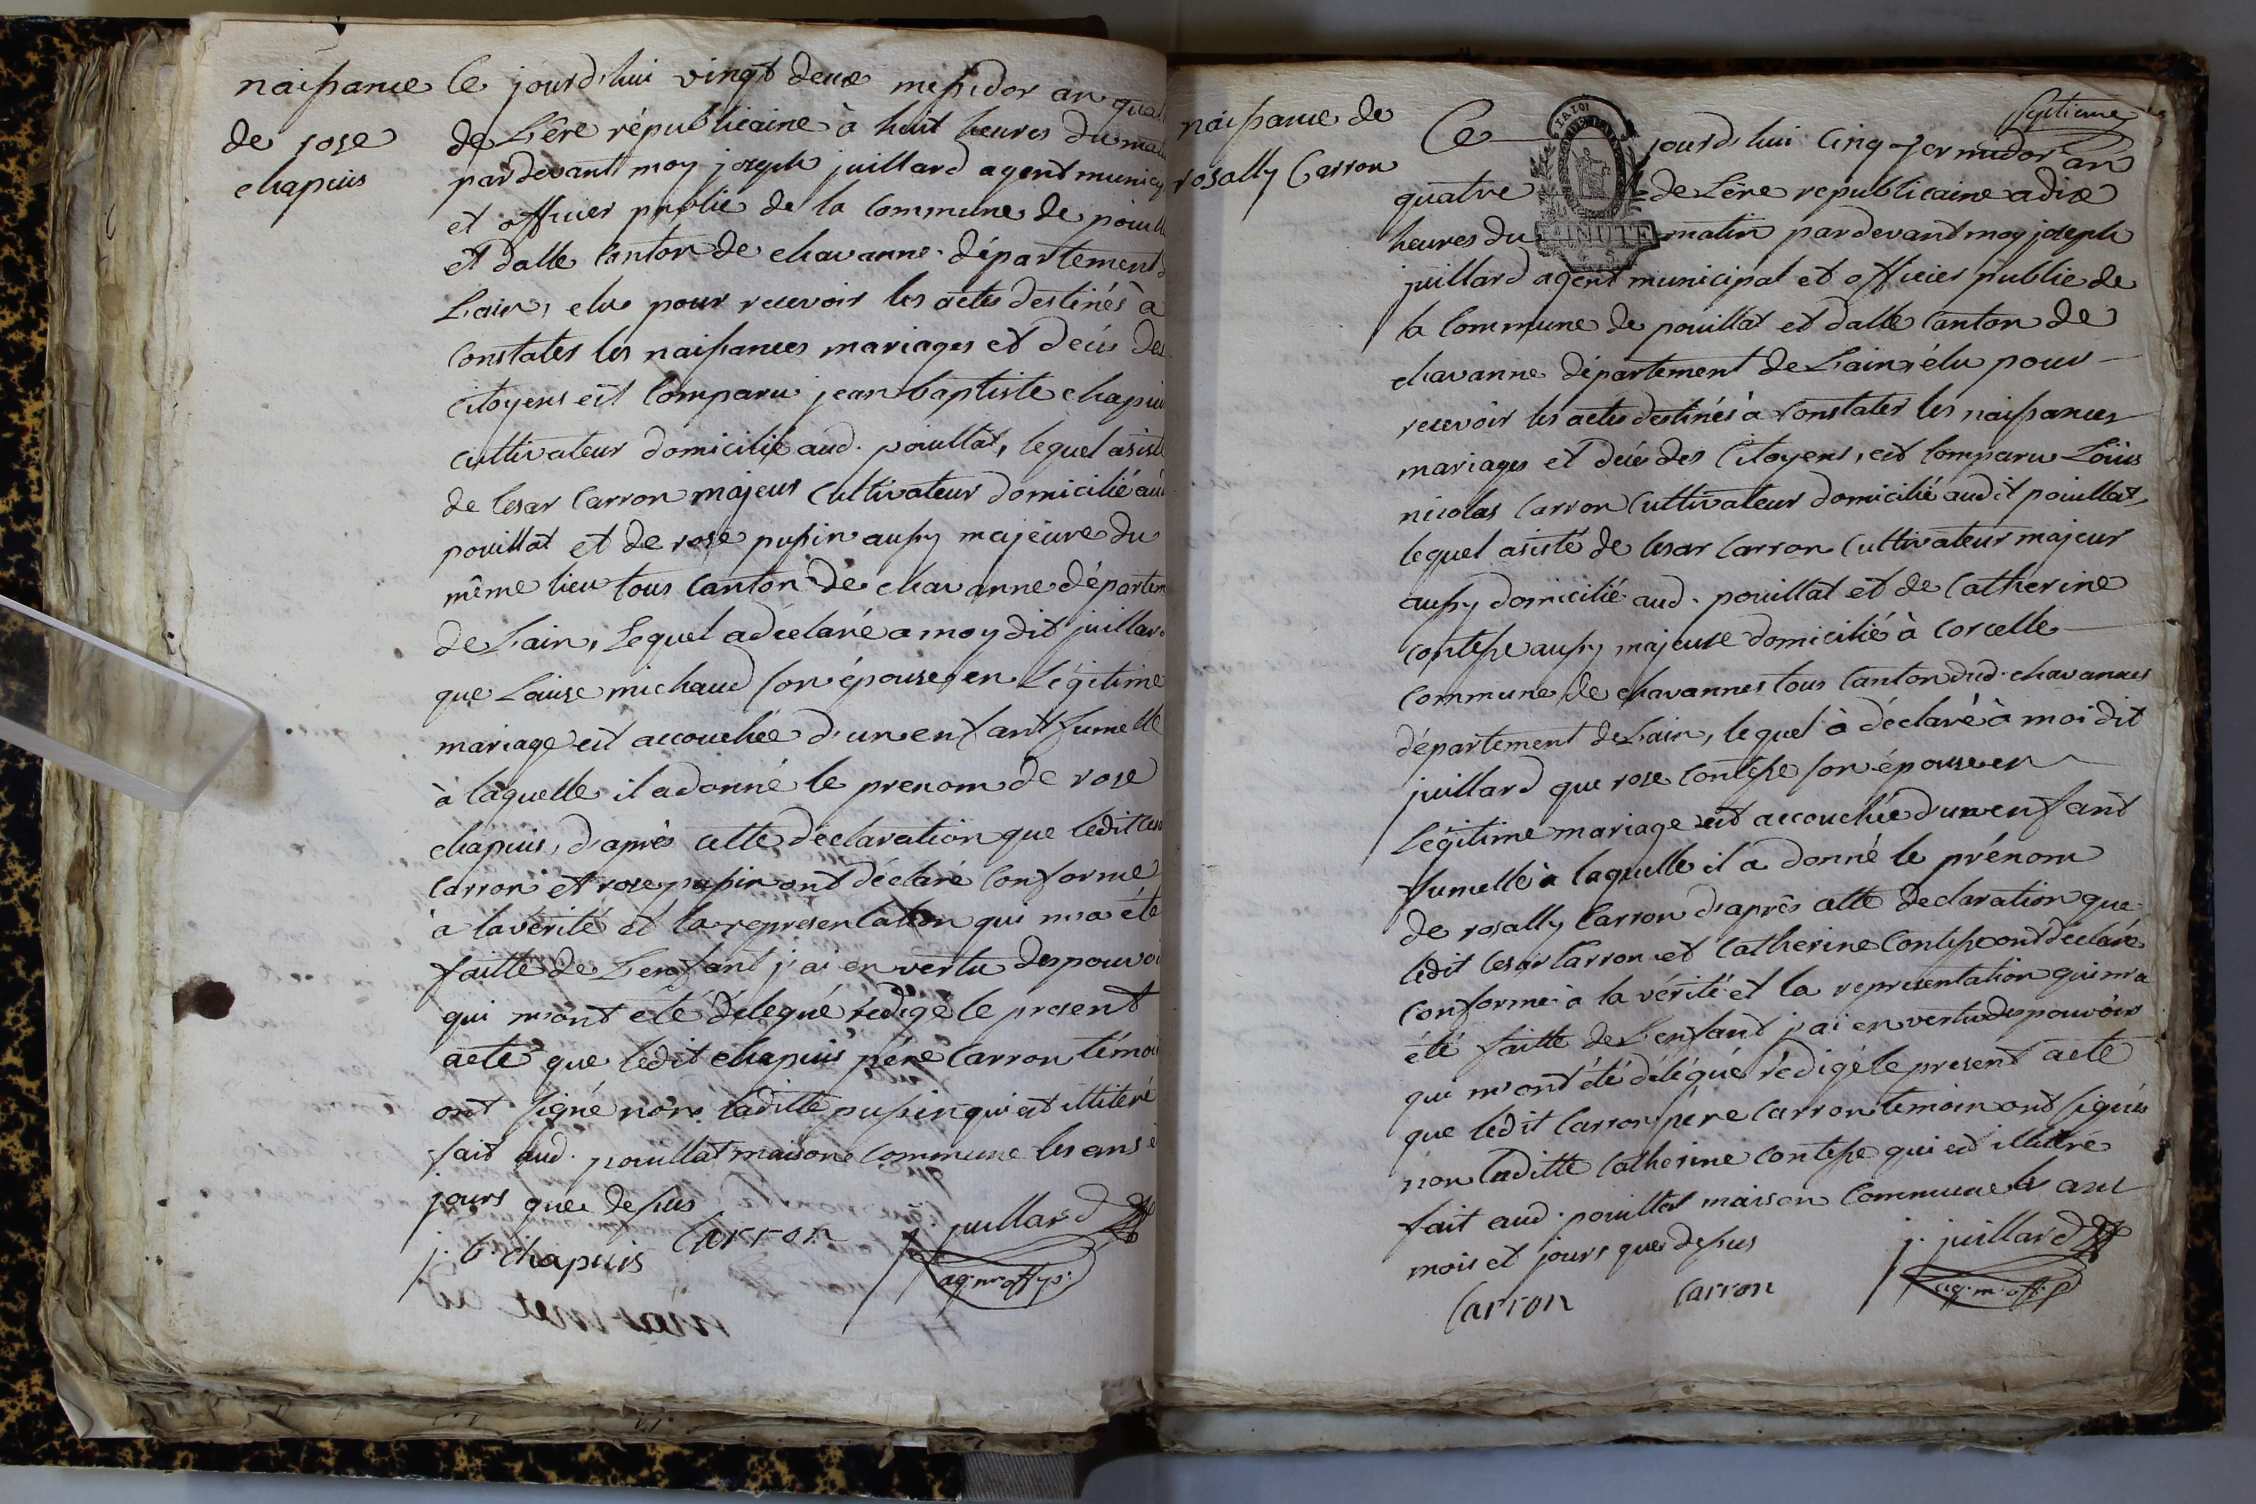 naissance
de rose
chapuis
Ce jourd'hui vingt deux messidor an
de L'ère républicaine à huit heures du
pardevant moy joseph juillard agent
et officier public de la Commune de
et dalle Canton de chavanne département
L'ain, elu pour recevoir les actes destinés à
Constater les naissances mariages et décès
Citoyens est Comparu jean baptiste
Cultivateur domicilié aud. pouillat, lequel
de Cesar Carron majeur Cultivateur domicilié
pouillat et de rose pupin aussy majeure du
même lieu tous Canton de chavanne
de L'ain, Lequel a déclaré a moy dit
que Louise michaud son épouse en Légitime
mariage est accouchée d'un enfant fumelle
à laquelle il a donné le prenom de rose
chapuis, d'après cette déclaration que ledit
Carron et rose pupin ont déclaré Conforme
à la vérité et la representation qui m'a été
faitte de L'enfant j'ai en vertu des
qui m'ont été délegué rédigé le present
acte que ledit chapuis père Carron
ont signé non laditte pupin qui est illitéré
fait aud. pouillat maison Commune les ans
jours que dessus
j. b. chapuis Carron j. juillard
ag. m. off. p.
naissance de
rosally Carron
Septieme
Ce jourd'hui Cinq
LA LOI
quatre de L'ère republicaine a dix
heures du matin pardevant moy joseph
MINUTE
juillard agent municipal et officier public de
la Commune de pouillat et dalle Canton de
chavanne département de L'ain, élu pour
recevoir les actes destinés à Constater les naissances
mariages et décès des Citoyens, est Comparu Loüis
nicolas Carron Cultivateur domicilié audit pouillat,
lequel asisté de Cesar Carron Cultivateur majeur
aussy domicilié aud. pouillat et de Catherine
Contesse aussy majeure domicilié à Corcelle
Commune de chavannes tous Canton dud. chavannes
département de L'ain, lequel à déclaré à moi dit
juillard que rose Contesse son épouse en
Légitime mariage est accouchée d'un enfant
fumelle à laquelle il a donné le prénom
de rosally Carron d'après cette declaration que
ledit Cesar Carron et Catherine Contesse ont déclaré
Conforme à la vérité et la representation qui m'a
été faitte de L'enfant j'ai en vertu des pouvoirs
qui m'ont été délégué rédigé le present acte
que ledit Carron père Carron temoin ont signés
non laditte Catherine Contesse qui est illitéré
fait aud. pouillat maison Commune les ans
mois et jours que dessus j. juillard
Carron Carron ag. m. off. p.